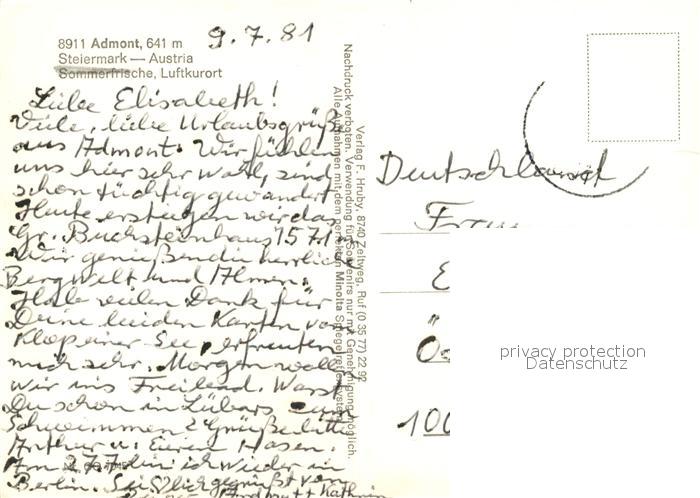 8911 Admont, 641 m
Steiermark — Austria
Sommerfrische, Luftkurort
9.7.81
Liebe Elisabeth!
Viele, liebe Urlaubsgrüße
aus Admont. Wir fühlen
uns hier sehr wohl, sind
schon tüchtig gewandert
Heute ersteigen wir das
Gr. Buchsteinhaus 1571
Wir genießen die herrlich
Bergwelt und Almen.
Habe vielen Dank für
Deine beiden Karten vom
Klopeiner See, erfreuten
mich sehr. Morgen wollen
wir ins Freibad. Warst
Du schon in Lübars zum
Schwimmen? Grüße bitte
Arthur u. Euren Hasen.
Am 27.7. bin ich wieder in
Berlin. Sei lieb gegrüßt von
Verlag F. Hruby, 8740 Zeltweg, Ruf (0 35 77) 22 92
Nachdruck verboten. Verwendung für Souvenirs nur mit Genehmigung möglich.
Alle Aufnahmen mit dem perfekten Minolta Spiegelreflexsystem
Deutschland
Frau
E
Ös
100
privacy protection
Datenschutz